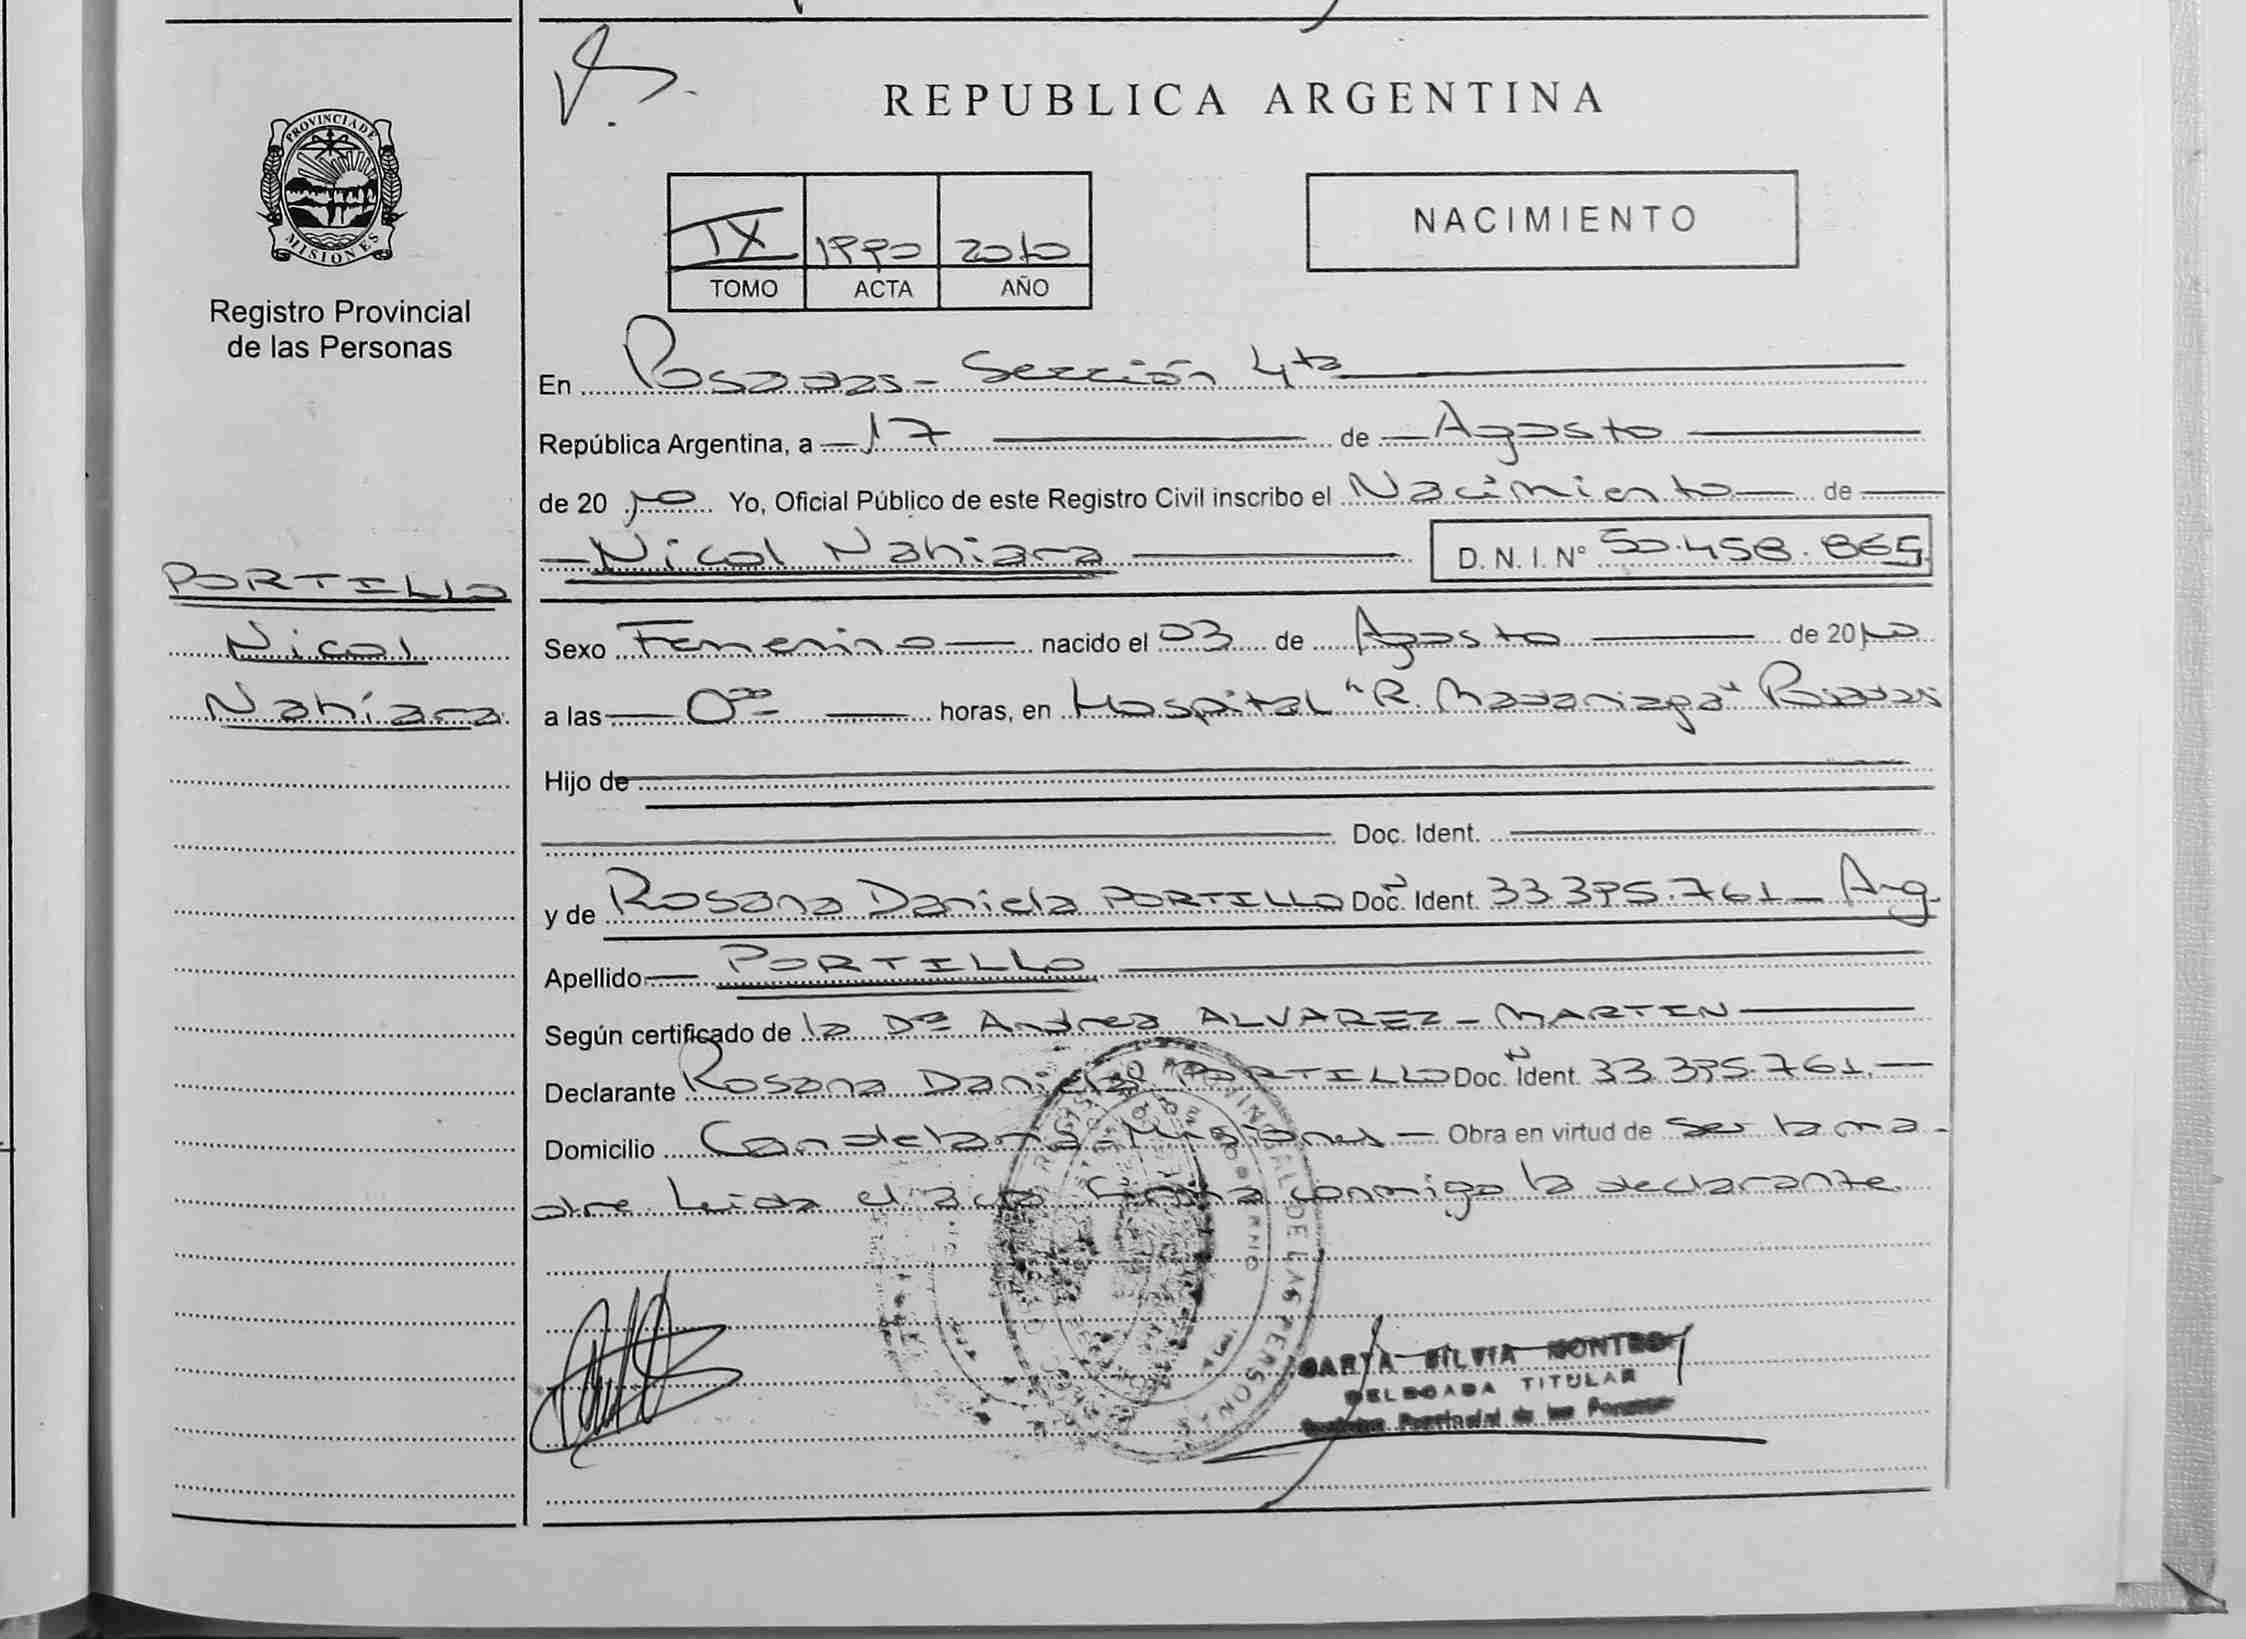 REPUBLICA ARGENTINA
PROVINCIA DE
MISIONES
Registro Provincial
de las Personas
IX 1990 2010
TOMO ACTA AÑO
NACIMIENTO
En Posadas - Sección 4ta
República Argentina, a 17 de Agosto
de 2010 Yo, Oficial Público de este Registro Civil inscribo el Nacimiento de
Nicol Nahiara D. N. I. Nº 50.458.865
PORTILLO
Nicol
Nahiara
Sexo Femenino nacido el 03 de Agosto de 2010
a las 0 horas, en Hospital "R. Madariaga" Posadas
Hijo de
Doc. Ident.
y de Rosana Daniela PORTILLO Doc. Ident. 33.395.761 - Arg.
Apellido PORTILLO
Según certificado de la Dra Andrea ALVAREZ - MARTIN
Declarante Rosana Daniela PORTILLO Doc. Ident. 33.395.761.
Domicilio Candelaria - Misiones - Obra en virtud de ser la ma-
dre. Leída el acta firma conmigo la declarante.
SILVIA
DELEGADA TITULAR
Provincial de las Personas